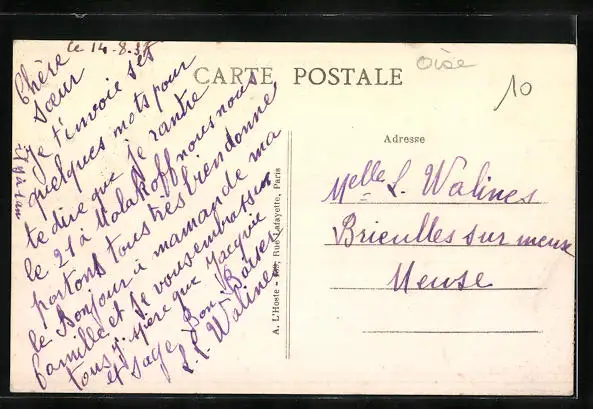 CARTE POSTALE
Oise
10
le 14-8.37
Chère
Sœur
Je t'envoie ses
quelques mots pour
te dire que je rantre
le 21 à Malakoff nous nous
portons tous très bien donne
le Bonjour à maman de ma
famille et Je vous embrasse
tous j'spère que Jacquie
et sage, Bon Baiser
L. Walines
A. L'Hoste - Rue Lafayette, Paris
Adresse
Melle L. Walines
Brieulles sur meuse
Meuse